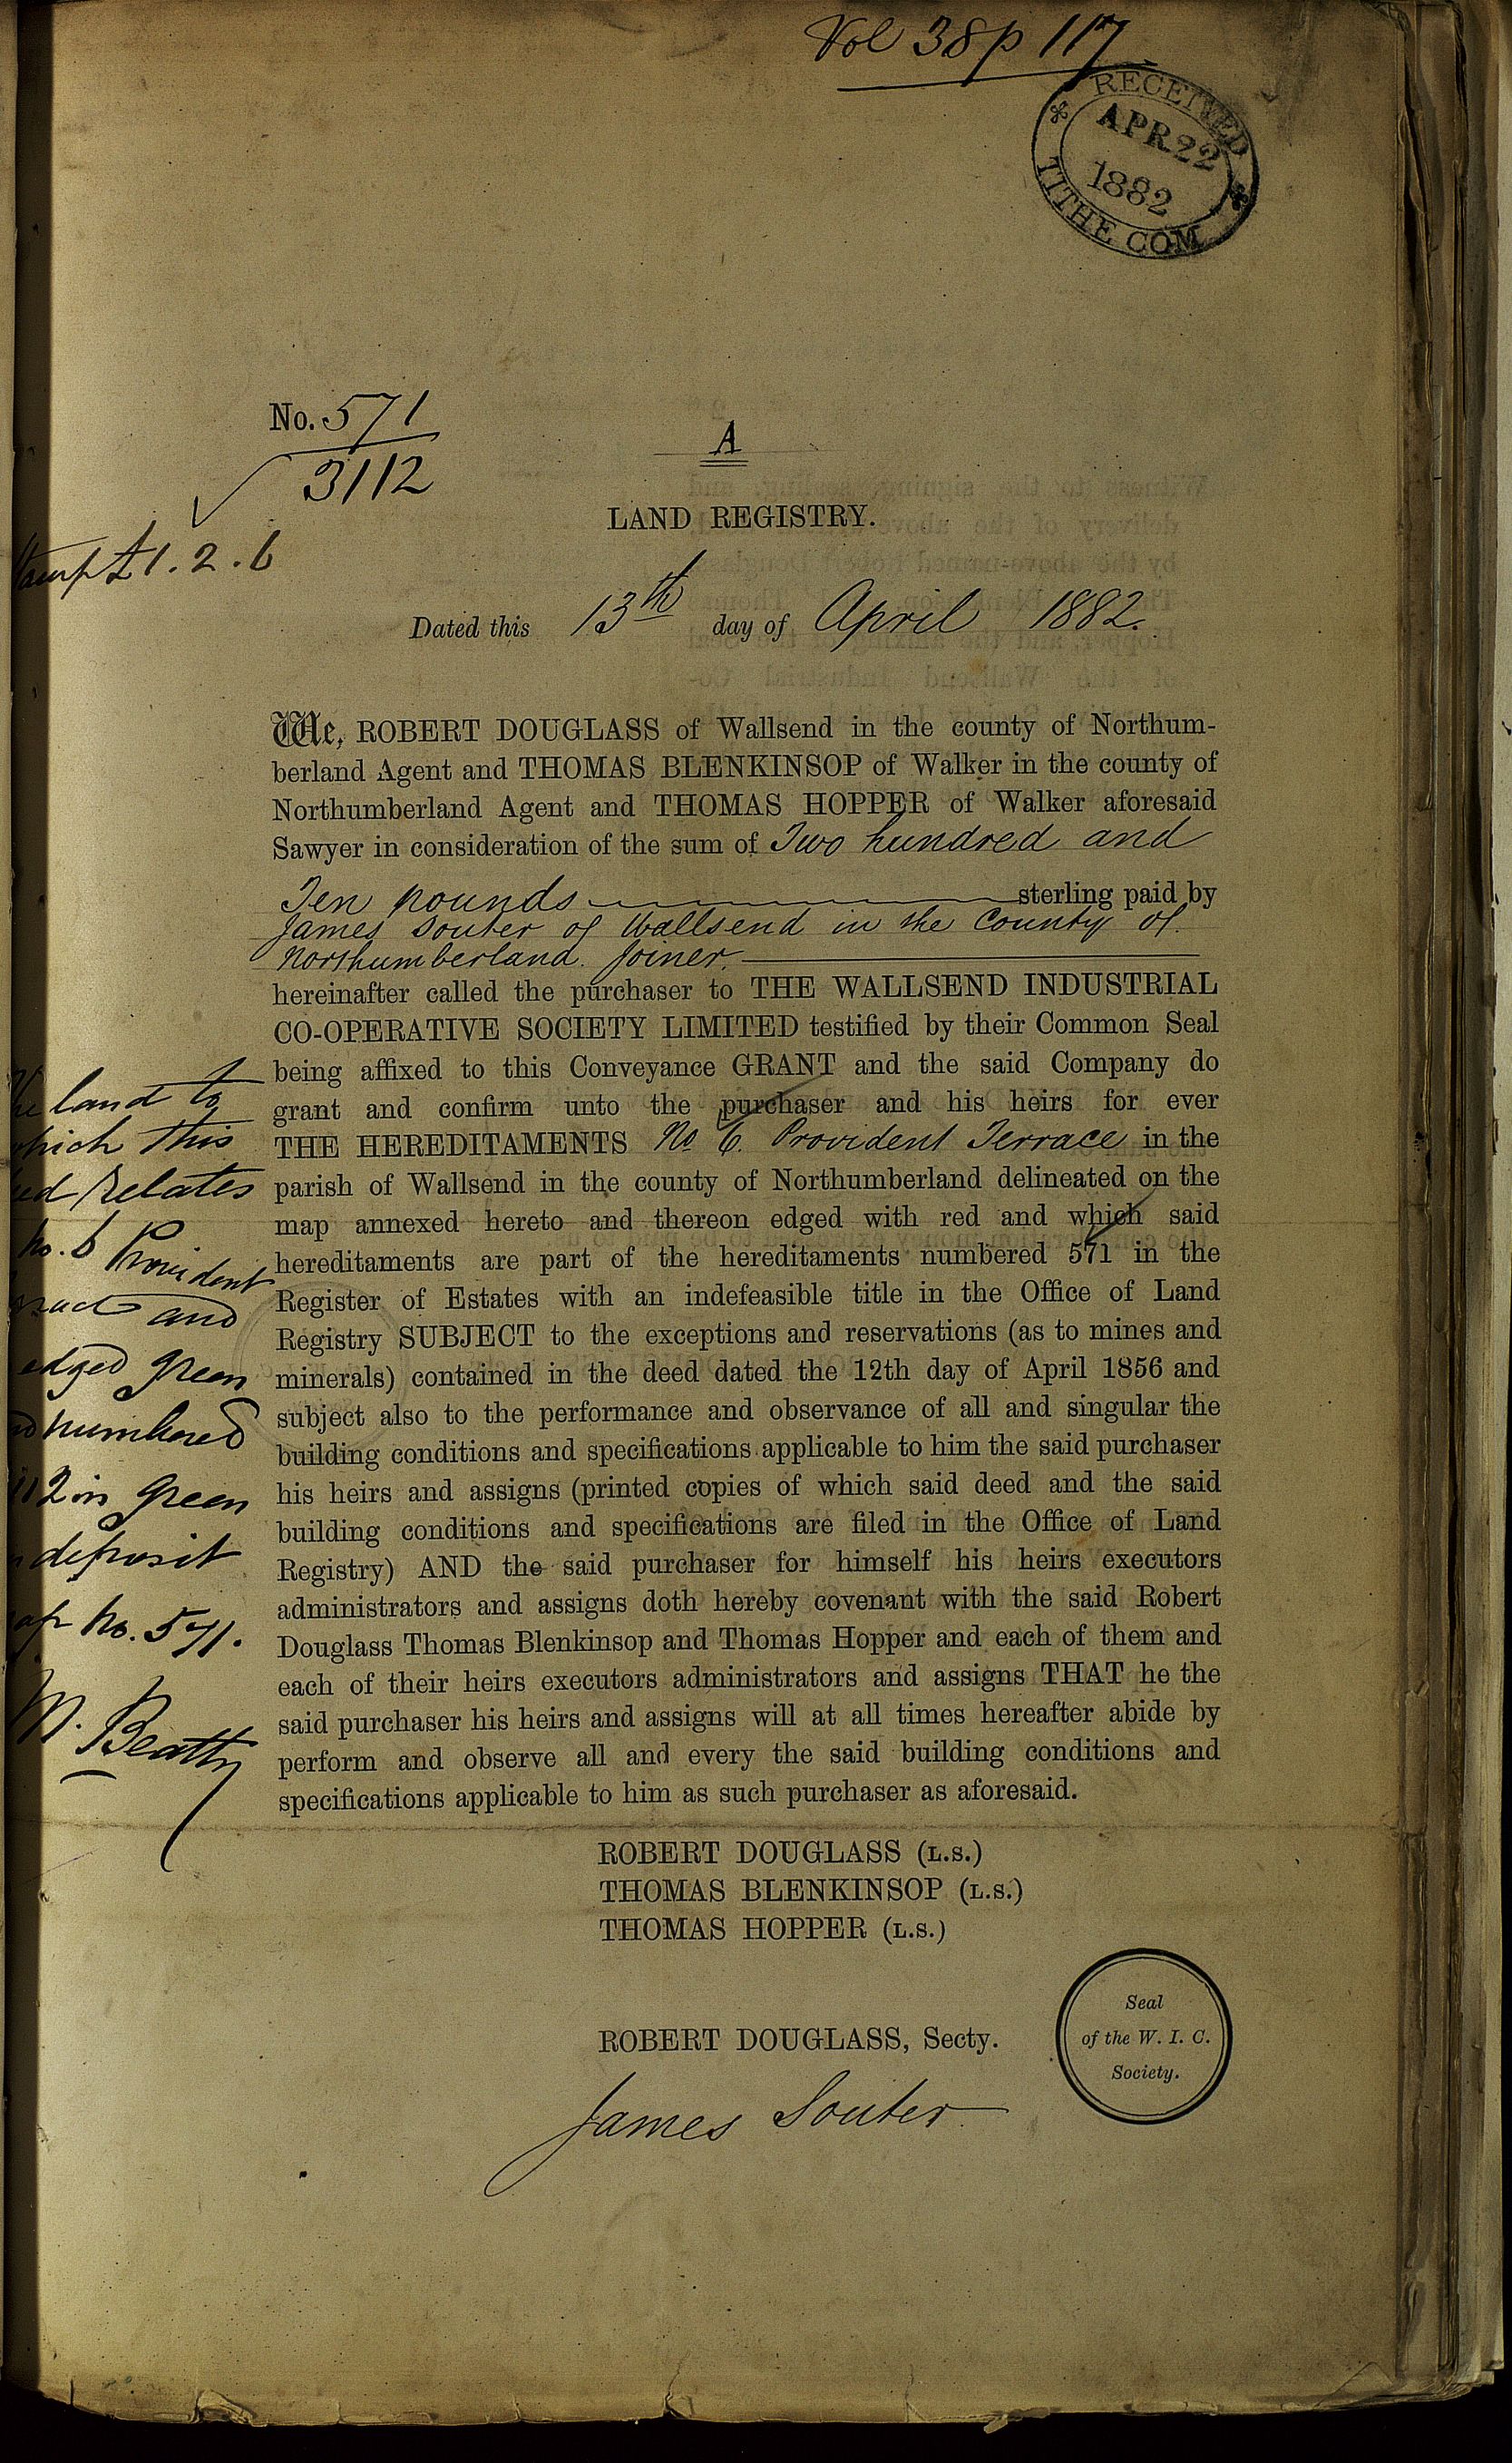 Vol 38 p 117
RECEIVED
APR 22
1882
TITHE COM
No. 571
3112
A
LAND REGISTRY.
£1.2.6
Dated this 13th day of April 1882.
We, ROBERT DOUGLASS of Wallsend in the county of Northum-
berland Agent and THOMAS BLENKINSOP of Walker in the county of
Northumberland Agent and THOMAS HOPPER of Walker aforesaid
Sawyer in consideration of the sum of Two hundred and
Ten pounds sterling paid by
James Souter of Wallsend in the County of
Northumberland. Joiner.
hereinafter called the purchaser to THE WALLSEND INDUSTRIAL
CO-OPERATIVE SOCIETY LIMITED testified by their Common Seal
being affixed to this Conveyance GRANT and the said Company do
grant and confirm unto the purchaser and his heirs for ever
THE HEREDITAMENTS No 6. Provident Terrace in the
parish of Wallsend in the county of Northumberland delineated on the
map annexed hereto and thereon edged with red and which said
hereditaments are part of the hereditaments numbered 571 in the
Register of Estates with an indefeasible title in the Office of Land
Registry SUBJECT to the exceptions and reservations (as to mines and
minerals) contained in the deed dated the 12th day of April 1856 and
subject also to the performance and observance of all and singular the
building conditions and specifications applicable to him the said purchaser
his heirs and assigns (printed copies of which said deed and the said
building conditions and specifications are filed in the Office of Land
Registry) AND the said purchaser for himself his heirs executors
administrators and assigns doth hereby covenant with the said Robert
Douglass Thomas Blenkinsop and Thomas Hopper and each of them and
each of their heirs executors administrators and assigns THAT he the
said purchaser his heirs and assigns will at all times hereafter abide by
perform and observe all and every the said building conditions and
specifications applicable to him as such purchaser as aforesaid.
land to
which this
relates
No. 6 Provident
and
edged green
numbered
in green
deposit
No. 571.
Beatty
ROBERT DOUGLASS (L.S.)
THOMAS BLENKINSOP (L.S.)
THOMAS HOPPER (L.S.)
ROBERT DOUGLASS, Secty.
Seal
of the W. I. C.
Society.
James Souter